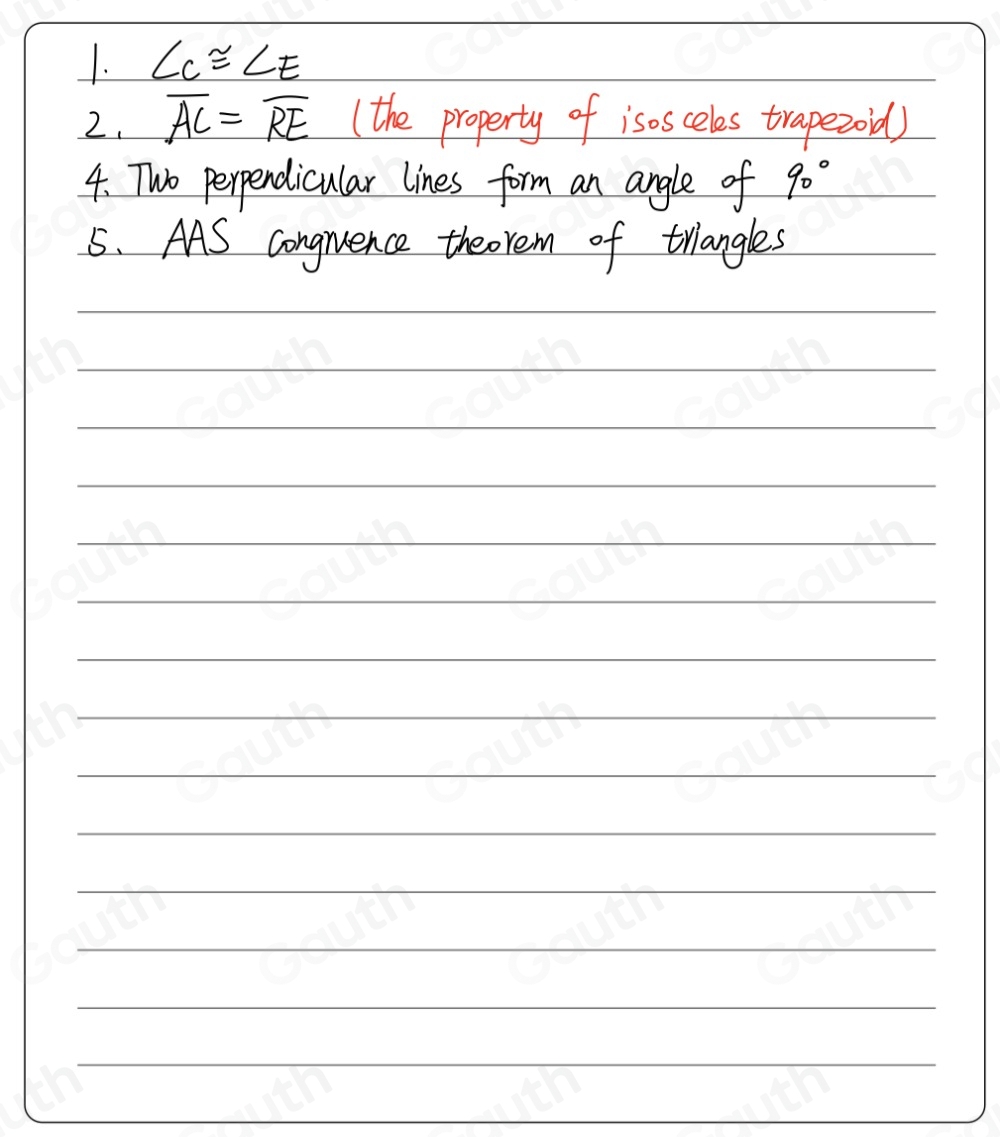 1. ∠C ≅ ∠E
2. A̅C̅ = R̅E̅ (the property of isosceles trapezoid)
4. Two perpendicular lines form an angle of 90°
5. AAS congruence theorem of triangles